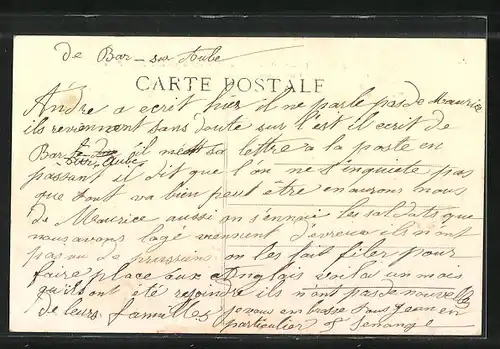 de Bar-sur Aube
CARTE POSTALE
André a ecrit hier il ne parle pas de Maurice
ils reviennent sans doute sur l'est il ecrit de
Bar sur Aube il met sa lettre a la poste en
passant il dit que l'on ne s'inquiete pas
que tout va bien peut etre en aurons nous
de Maurice aussi on s'ennuie les soldats que
nous avons logé viennent d'évreux ils n'ont
pas vu de prussiens on les fait filer pour
faire place aux Anglais voila un mois
qu'ils ont été rejoindre ils n'ont pas de nouvelles
de leurs familles je vous embrasse tous Jean en
particulier